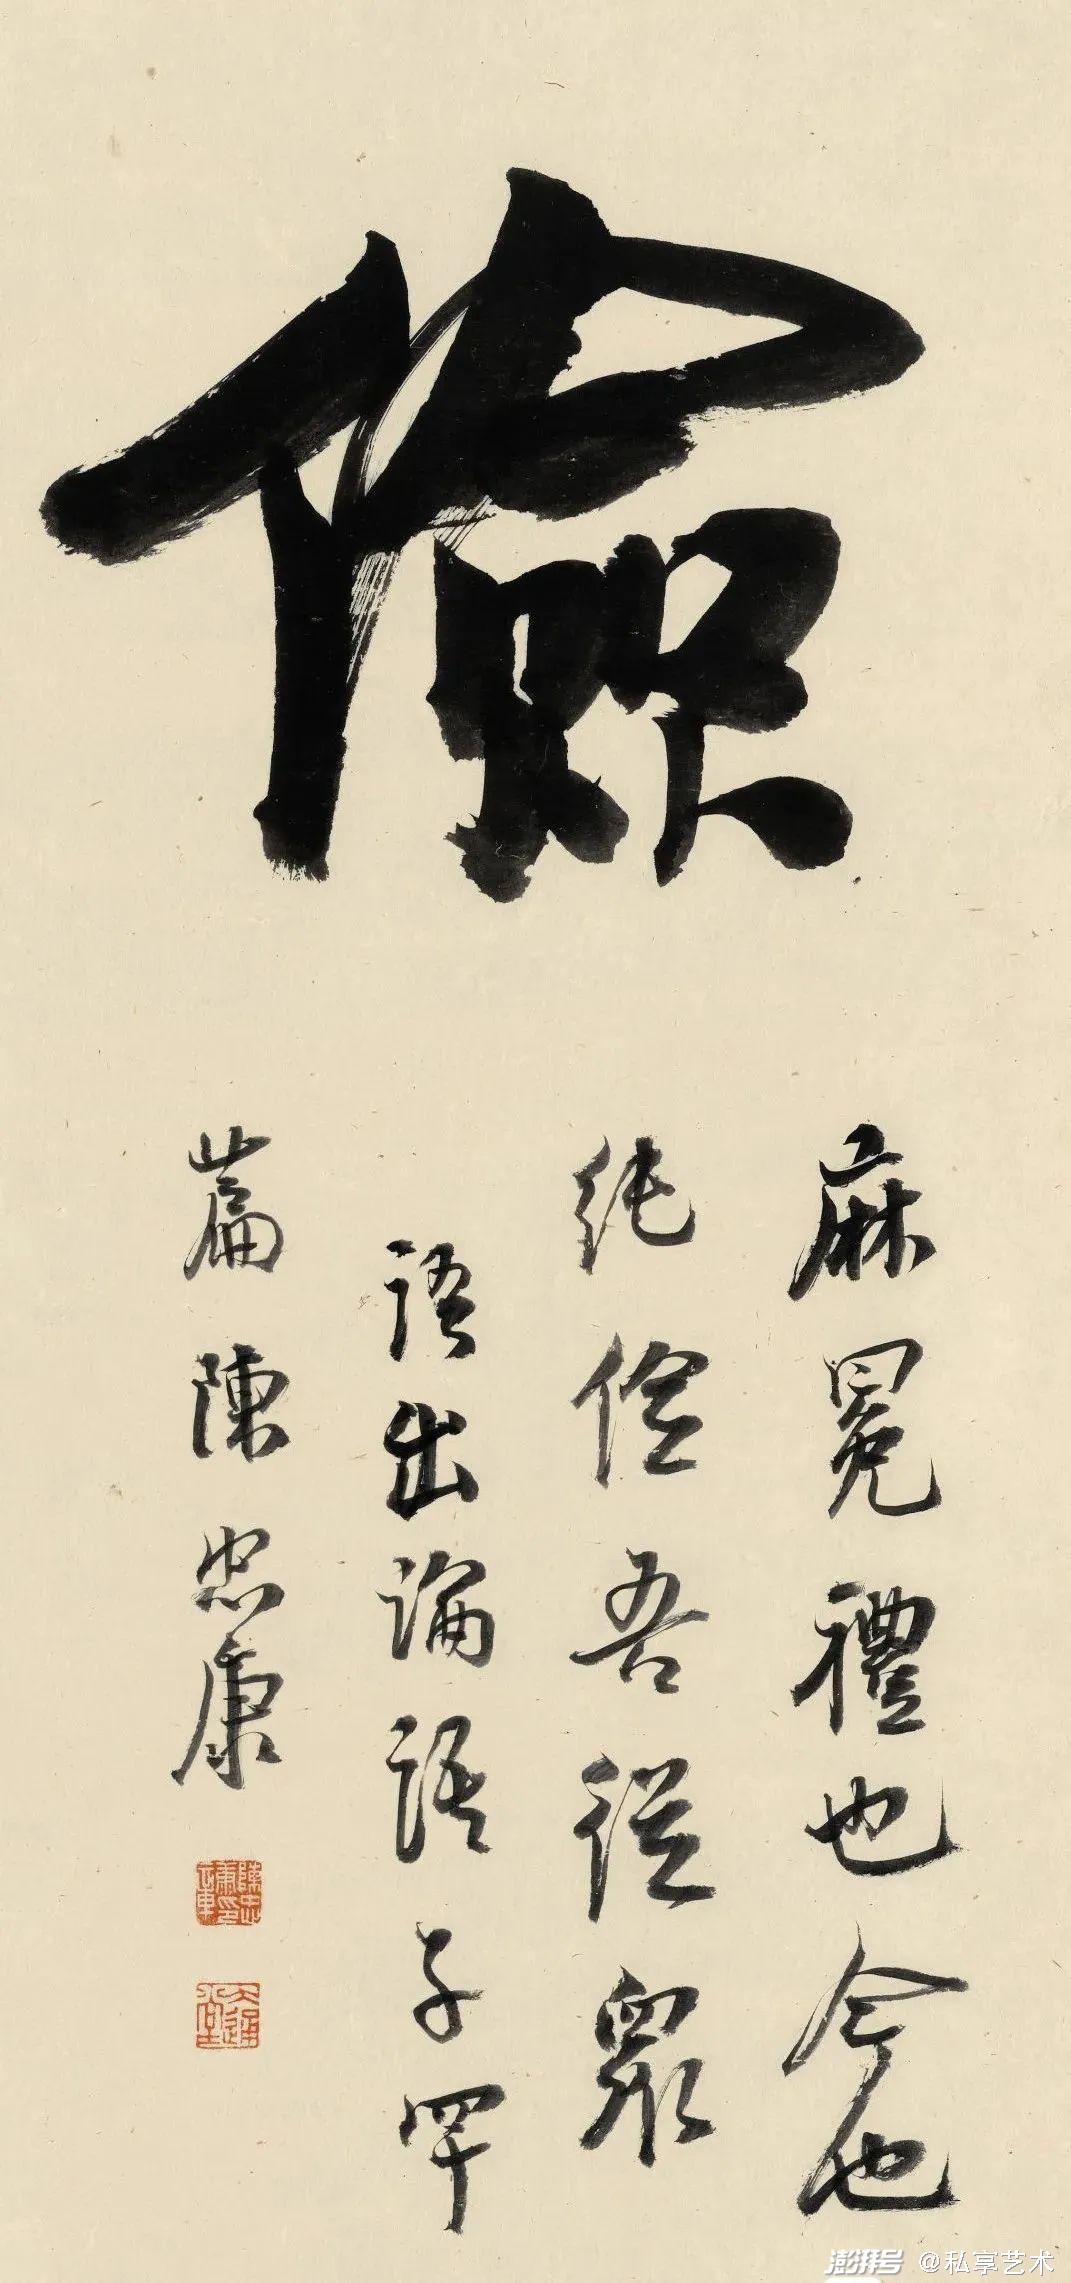 儉
麻冕禮也今也
純儉吾從衆
語出論語子罕
篇陳忠康
澎湃号 @私享艺术